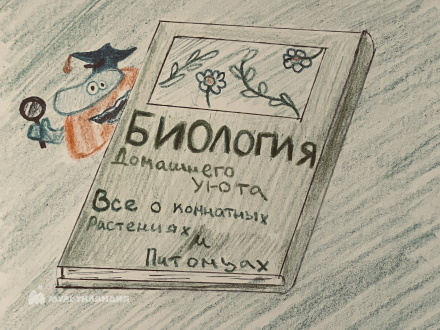 БИОЛОГИЯ
Домашнего
уюта
Все о комнатных
растениях
и
Питомцах
МУЛЬТЛАНДИЯ